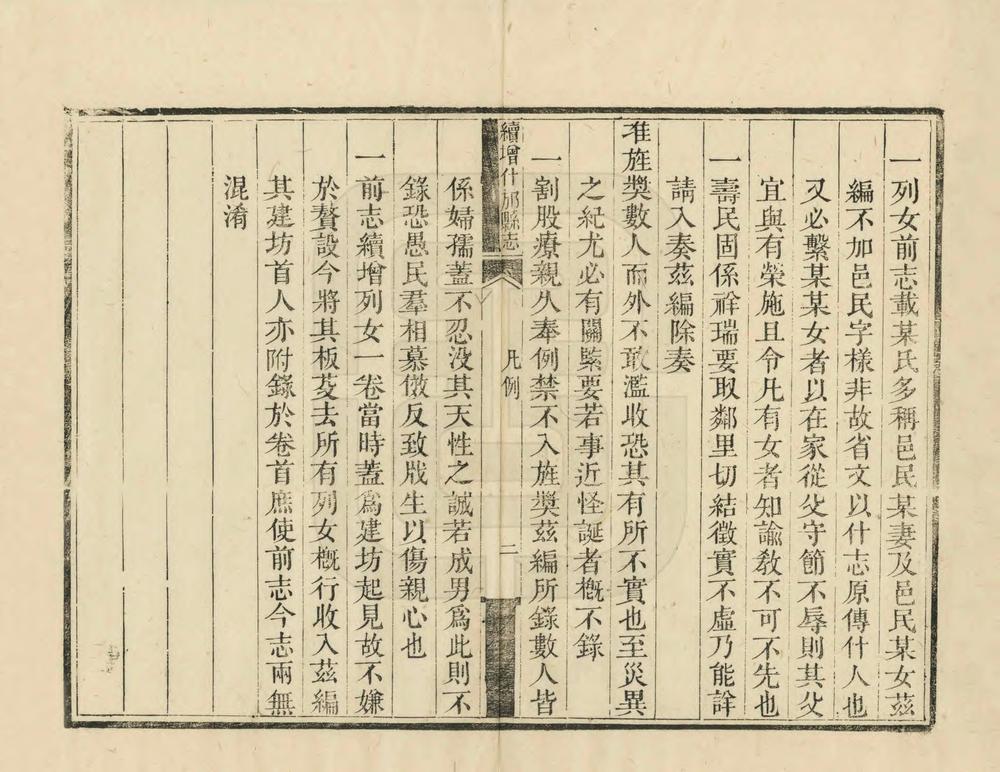 一列女前志載某氏多稱邑民某妻及邑民某女茲
編不加邑民字樣非故省文以什志原傳什人也
又必繫某某女者以在家從父守節不辱則其父
宜與有榮施且令凡有女者知諭敎不可不先也
一壽民固係祥瑞要取鄰里切結徵實不虛乃能詳
請入奏茲編除奏
准旌奬數人而外不敢濫收恐其有所不實也至災異
之紀尤必有關緊要若事近怪誕者槪不錄
一割股療親久奉例禁不入旌奬茲編所錄數人皆
續增什邡縣志
凡例
二
係婦孺蓋不忍没其天性之誠若成男爲此則不
錄恐愚民羣相慕傚反致戕生以傷親心也
一前志續增列女一卷當時蓋爲建坊起見故不嫌
於贅設今將其板芟去所有列女槪行收入茲編
其建坊首人亦附錄於卷首庶使前志今志兩無
混淆